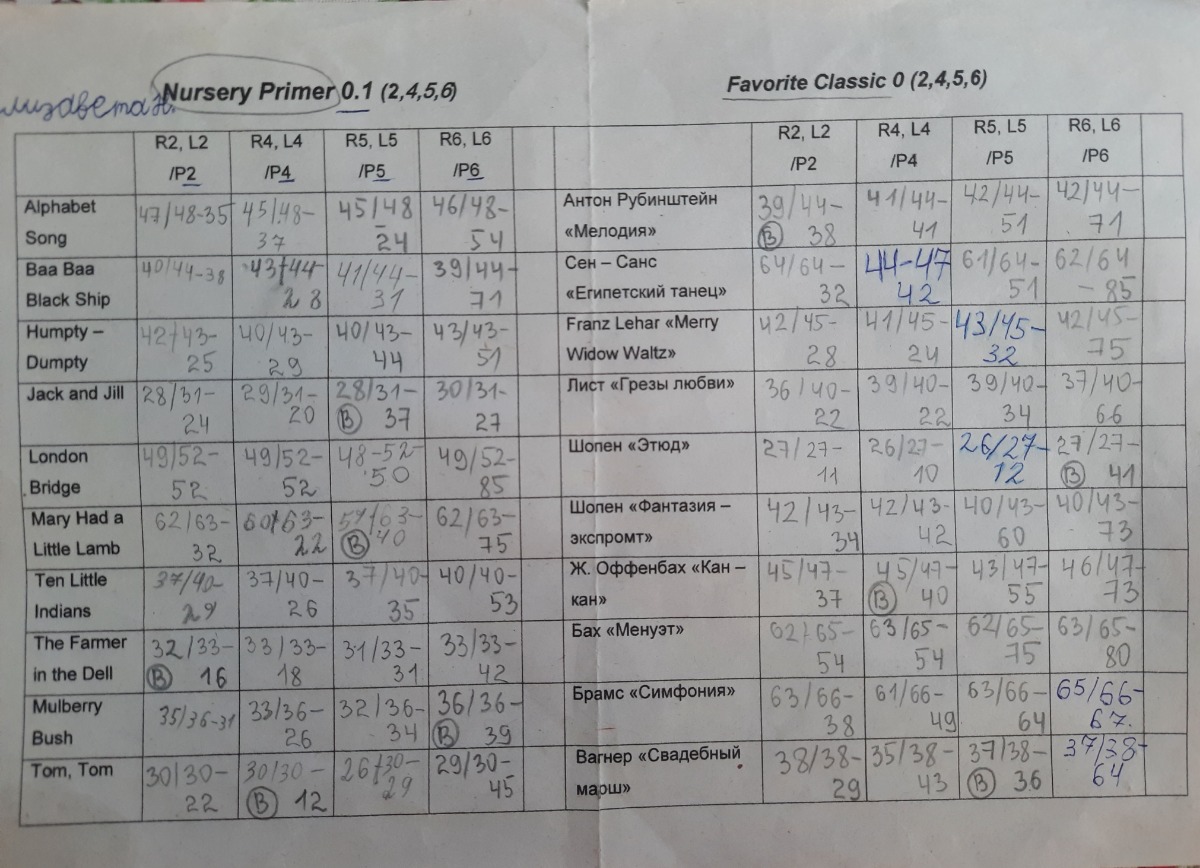 Nursery Primer 0.1 (2,4,5,6)
лизавета н.
R2, L2 /P2 R4, L4 /P4 R5, L5 /P5 R6, L6 /P6
Alphabet Song 47/48-35 45/48-37 45/48-24 46/48-54
Baa Baa Black Ship 40/44-38 43/44 28 41/44-31 39/44-71
Humpty – Dumpty 42/43-25 40/43-29 40/43-44 43/43-51
Jack and Jill 28/31-24 29/31-20 28/31-(B) 37 30/31-27
London Bridge 49/52-52 49/52-52 48-52-50 49/52-85
Mary Had a Little Lamb 62/63-32 60/63-22 59/63-(B) 40 62/63-75
Ten Little Indians 37/40-29 37/40-26 37/40-35 40/40-53
The Farmer in the Dell 32/33-(B) 16 33/33-18 31/33-31 33/33-42
Mulberry Bush 35/36-31 33/36-26 32/36-34 36/36-(B) 39
Tom, Tom 30/30-22 30/30-(B) 12 26/30-29 29/30-45
Favorite Classic 0 (2,4,5,6)
R2, L2 /P2 R4, L4 /P4 R5, L5 /P5 R6, L6 /P6
Антон Рубинштейн «Мелодия» 39/44-(B) 38 41/44-41 42/44-51 42/44-71
Сен – Санс «Египетский танец» 64/64-32 44-47 42 61/64-51 62/64-85
Franz Lehar «Merry Widow Waltz» 42/45-28 41/45-24 43/45-32 42/45-75
Лист «Грезы любви» 36/40-22 39/40-22 39/40-34 37/40-66
Шопен «Этюд» 27/27-11 26/27-10 26/27-12 27/27-(B) 41
Шопен «Фантазия – экспромт» 42/43-34 42/43-42 40/43-60 40/43-73
Ж. Оффенбах «Кан – кан» 45/47-37 45/47-(B) 40 43/47-55 46/47-73
Бах «Менуэт» 62/65-54 63/65-54 62/65-75 63/65-80
Брамс «Симфония» 63/66-38 61/66-49 63/66-64 65/66-67.
Вагнер «Свадебный марш» 38/38-29 35/38-43 37/38-(B) 36 37/38-64